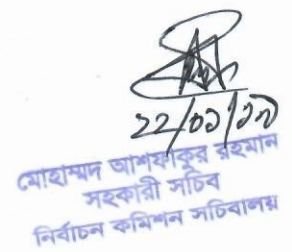 ২২/০১/২০
মোহাম্মদ আশফাকুর রহমান
সহকারী সচিব
নির্বাচন কমিশন সচিবালয়